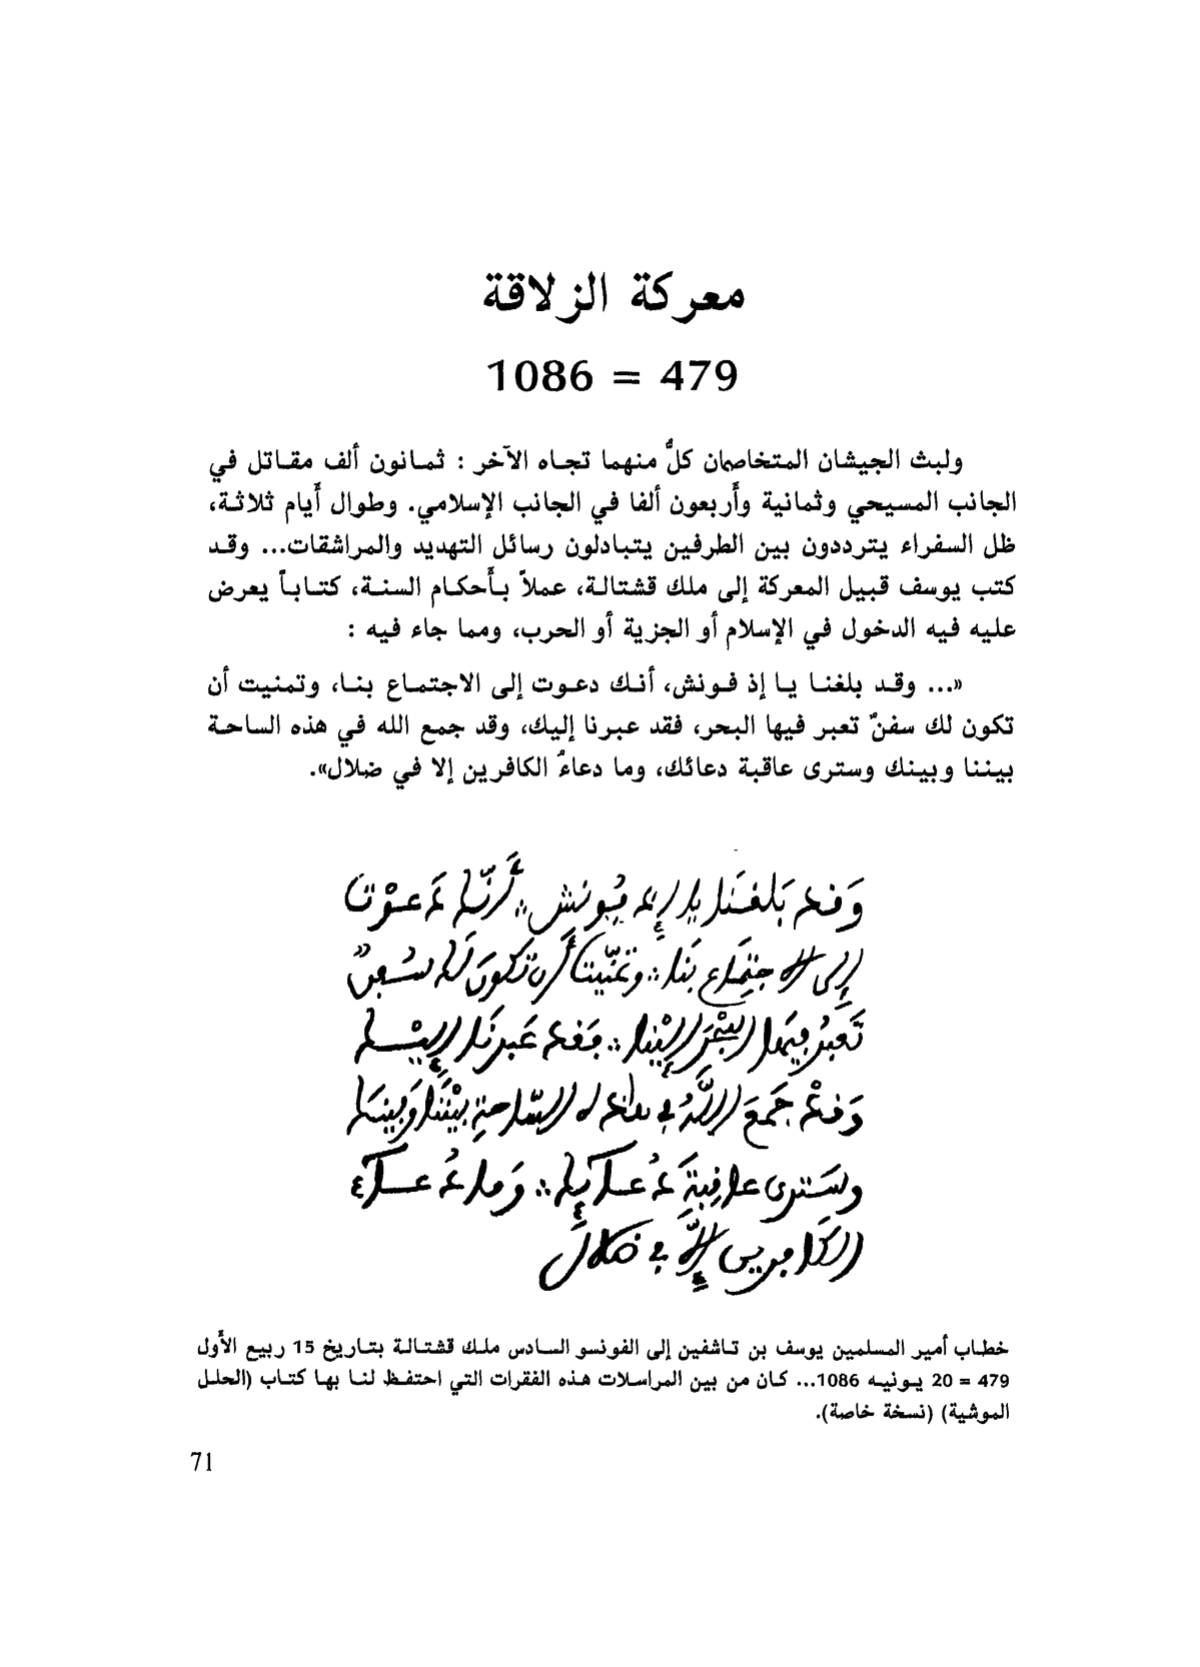 معركة الزلاقة
1086 = 479
ولبث الجيشان المتخاصمان كلٌّ منهما تجاه الآخر : ثمانون ألف مقاتل في
الجانب المسيحي وثمانية وأربعون ألفا في الجانب الإسلامي. وطوال أيام ثلاثة،
ظل السفراء يترددون بين الطرفين يتبادلون رسائل التهديد والمراشقات... وقد
كتب يوسف قبيل المعركة إلى ملك قشتالة، عملاً بأحكام السنة، كتاباً يعرض
عليه فيه الدخول في الإسلام أو الجزية أو الحرب، ومما جاء فيه :
«... وقد بلغنا يا إذ فونش، أنك دعوت إلى الاجتماع بنا، وتمنيت أن
تكون لك سفنٌ تعبر فيها البحر، فقد عبرنا إليك، وقد جمع الله في هذه الساحة
بيننا وبينك وسترى عاقبة دعائك، وما دعاءُ الكافرين إلا في ضلال».
وَقد بَلغَنا يا إِد فُونش أَنّك دَعوْت
إلى الاجتِمَاع بنَا وتمَنّيت أَن تكونَ لَك سُفنٌ
تَعبُر فيهَا البحْرَ إليْنا فَقد عَبرنَا إليْك
وَقدْ جَمعَ اللَّهُ في هاذه السّاحةِ بيْننَا وَبينَك
وسَترى عاقِبةَ دُعائِك وَما دُعاءُ
الكَافرين إلَّا في ضلالَ
خطاب أمير المسلمين يوسف بن تاشفين إلى الفونسو السادس ملك قشتالة بتاريخ 15 ربيع الأول
479 = 20 يونيه 1086... كان من بين المراسلات هذه الفقرات التي احتفظ لنا بها كتاب (الحلل
الموشية) (نسخة خاصة).
71